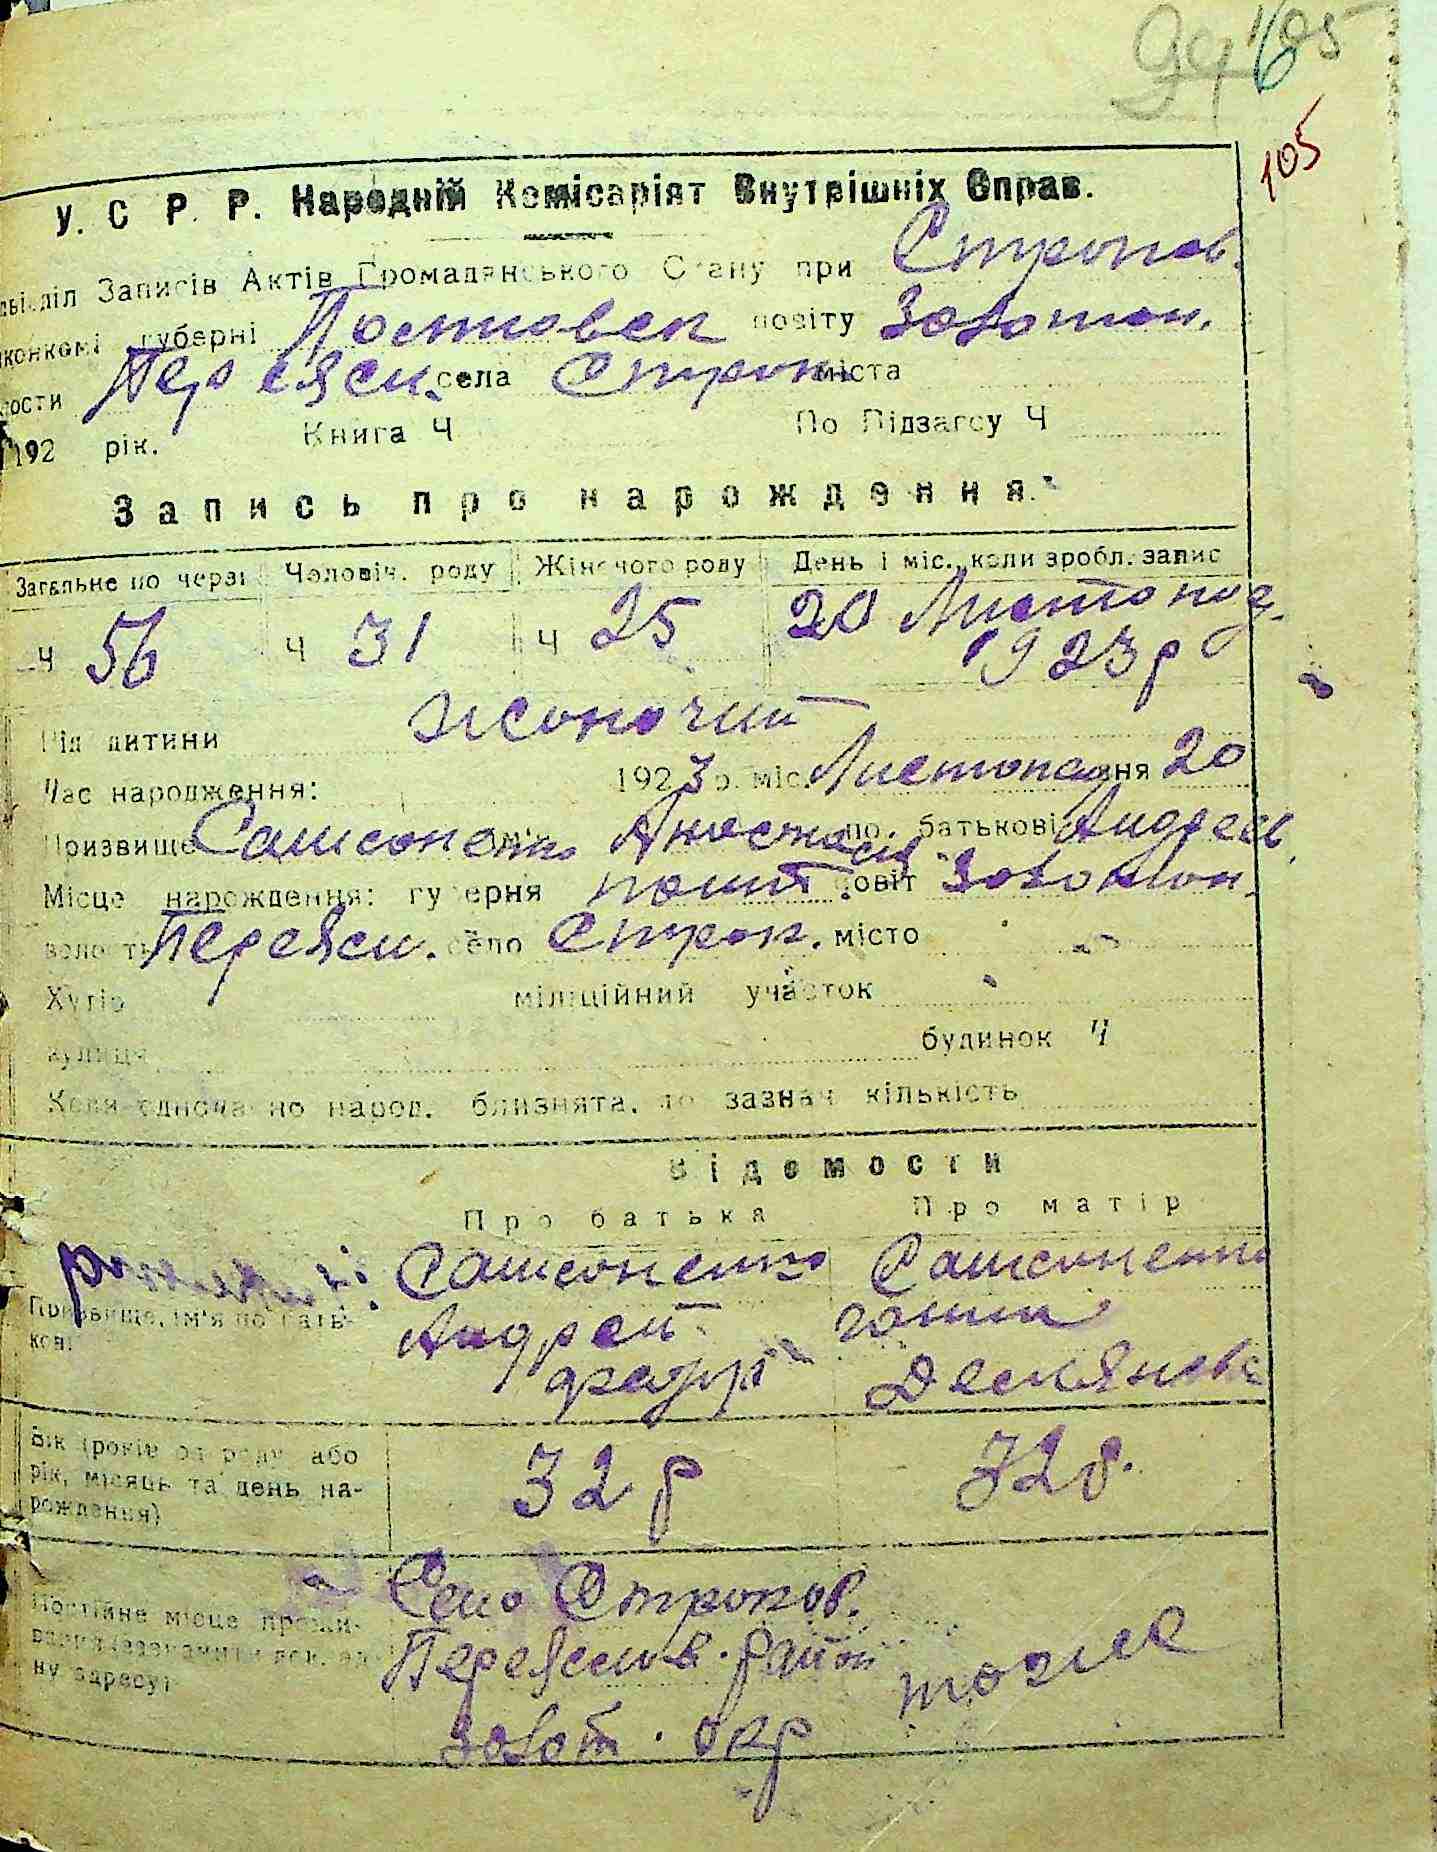 105
105
У. С Р. Р. Народній Комісаріят Внутрішніх Справ.
підвідділ Записів Актів Громадянського Стану при Строков.
конкомі губерні Полтовск повіту Золотон.
Переясл. села Строков міста
192 рік. Книга Ч По Підзагсу Ч
Запись про нарождення.
Загальне по черзі Чоловіч. роду Жіночого роду День і міс., коли зробл. запис
Ч 56 Ч 31 Ч 25 20 Листопад.
1923 р
Рід дитини жоночий
Час народження: 1923 р. міс. Листопад дня 20
Призвище Самсоненко ім'я Анастасія по батькові Андреев.
Місце нарождення: губерня Полт. повіт Золотон.
волость Переясл. село Строк. місто
Хутір міліційний участок
вулиця будинок Ч
Коли одночасно народ. близнята, то зазнач кількість
Відомости
Про батька Про матір
Самсоненко Самсоненко
Призвище, ім'я по бать-
кові
Андрей
Федор Демьянов
Вік (років од роду або
рік, місяць та день на-
рождення)
32 р 32 р.
Постійне місце прожи-
вання (зазначити док. ад-
ну адресу)
Село Строков.
Переяслів. район тоже
Золот. окр